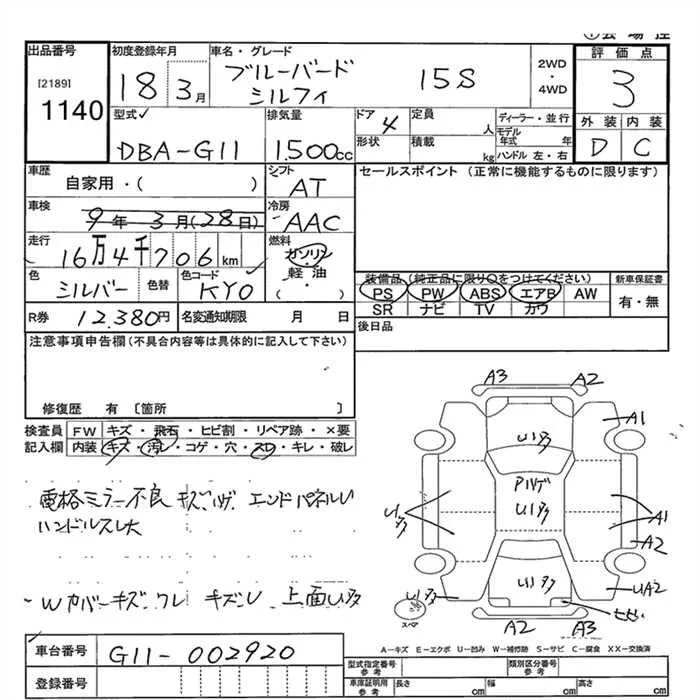 出品番号 初度登録年月 車名・グレード 2WD・4WD 評価点
[2189] 1140
18 3月 ブルーバード シルフィ 15S 3
型式 排気量 ドア 4 定員 人 ディーラー・並行
DBA-G11 1.500cc 形状 積載 kg モデル年式 年 ハンドル 左・右
外装 内装
D C
車歴 自家用・( ) シフト AT
セールスポイント (正常に機能するものに限ります)
車検 9年3月(28日) 冷房 AAC
走行 16万4千706km 燃料 ガソリン・軽油・( )
色 シルバー 色替 色コード KYO
装備品 (純正品に限り○をつけてください) 新車保証書
PS PW ABS エアB AW 有・無
SR ナビ TV カワ
R券 12.380円 名変通知期限 月 日
後日品
注意事項申告欄(不具合内容等は具体的に記入して下さい)
修復歴 有 〔箇所 〕
検査員記入欄 FW キズ・飛石・ヒビ割・リペア跡・×要
内装 キズ・汚レ・コゲ・穴・スレ・キレ・破レ
電格ミラー不良 キズハゲ エンドパネルU
ハンドルスレ大
Wカバーキズ ワレ キズレ 上面U多
A3 A2
A1
U1多
Pハゲ
U1多
U1多
A1
A2
U1多
U1多
UA2
スペア
A2 A3
車台番号 G11-002920
A-キズ E-エクボ U-凹み W-補修跡 S-サビ C-腐食 XX-交換済
登録番号
型式指定番号 参考 類別区分番号 参考
車庫証明用 参考 長さ cm 幅 cm 高さ cm